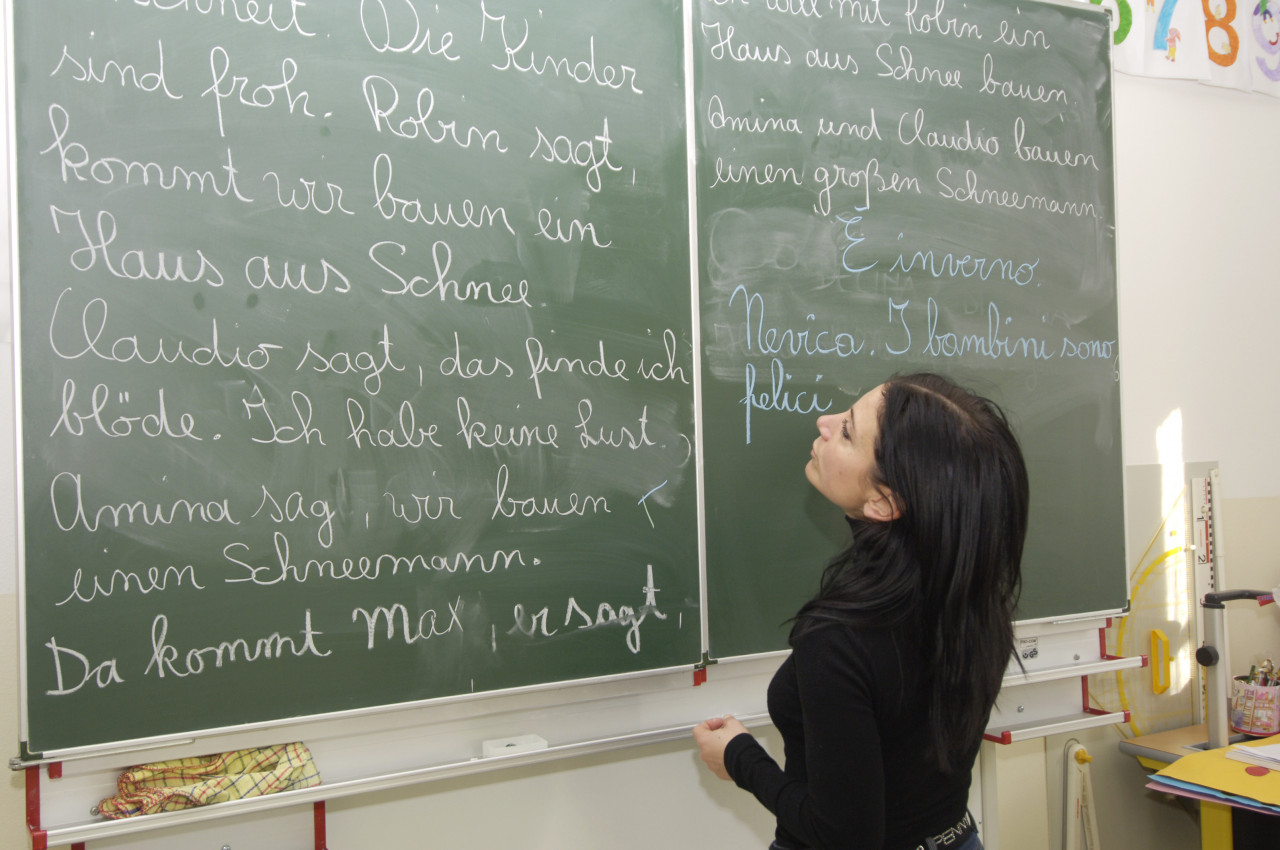 schneit. Die Kinder
sind froh. Robin sagt,
kommt wir bauen ein
Haus aus Schnee.
Claudio sagt, das finde ich
blöde. Ich habe keine Lust.
Amina sag, wir bauen
einen Schneemann.
Da kommt Max, er sagt,
ich will mit Robin ein
Haus aus Schnee bauen.
Amina und Claudio bauen
einen großen Schneemann.
È inverno.
Nevica. I bambini sono
felici
7 8 9
PENNY